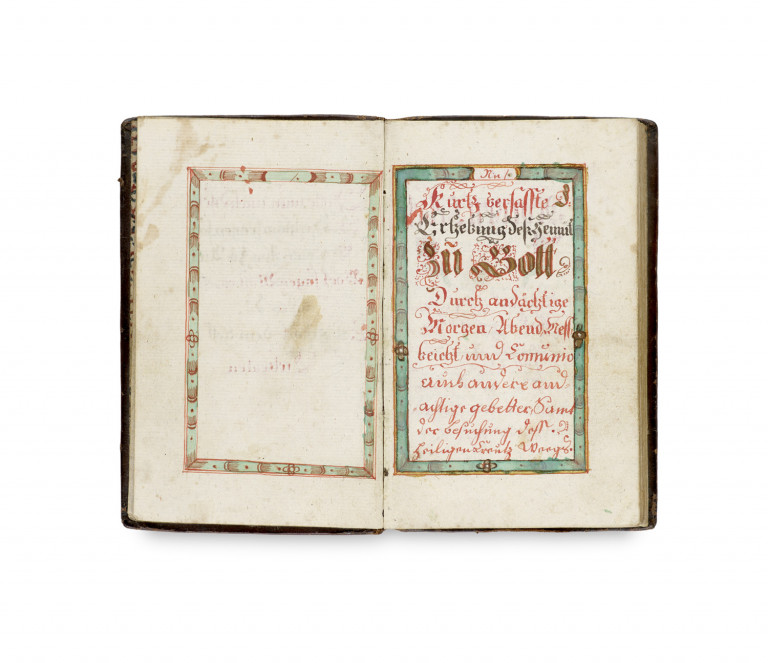 Kurtz verfasste
Erhebung deß Gemüt
Zu Gott
Durch andächtige
Morgen / Abend / Mess
beicht und Comunio
auch andere and
ächtige gebetter / Samt
der besuchung dess
heiligen Creutz Weegs